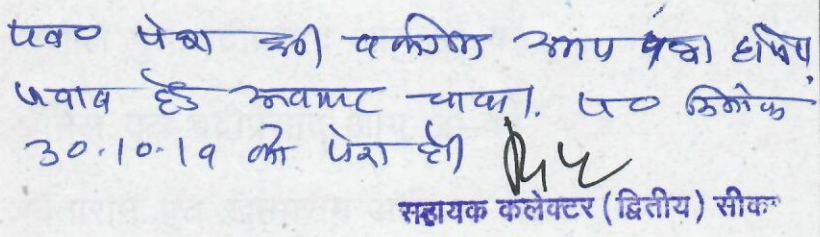 पत्र० पेश हुई वकील उभय पक्ष हाजिर
जवाब हेतु अवसर चाहा। प० दिनांक
30.10.19 को पेश हो
सहायक कलेक्टर (द्वितीय) सीकर